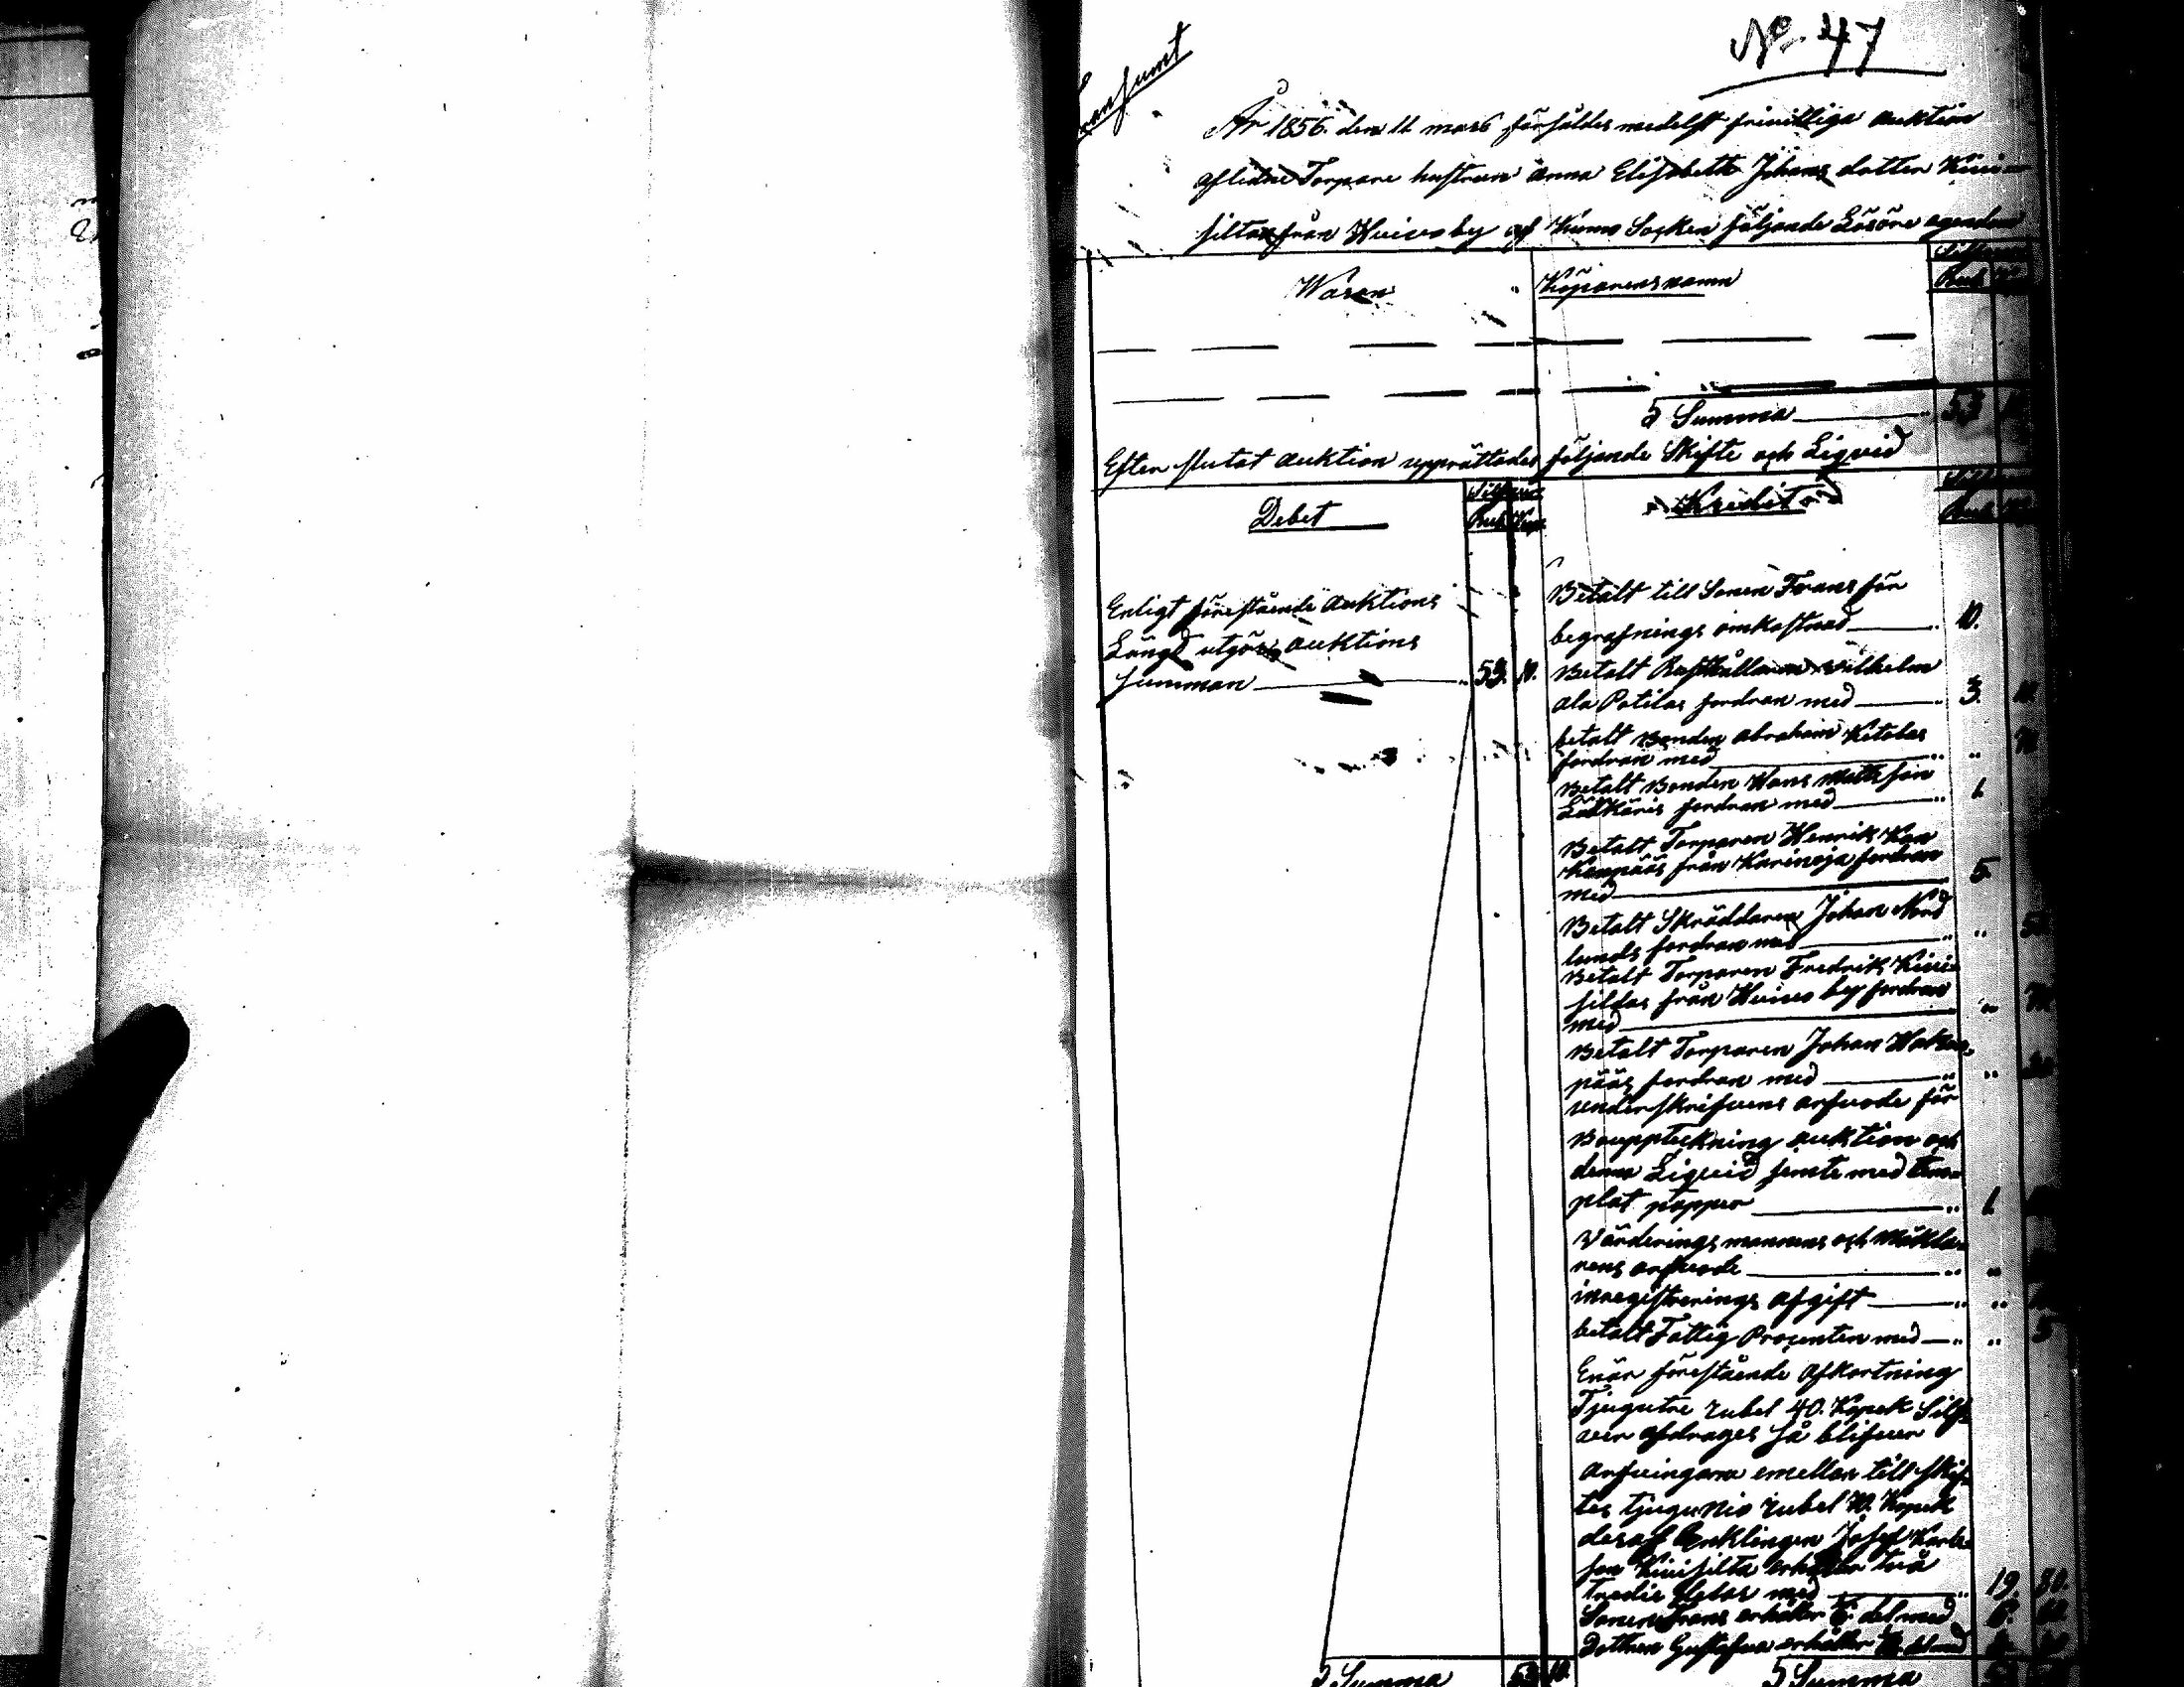 No 47
Transumt
År 1856. den 11 mars försåldes medelst frivilliga auktion
aflidne Torpare hustrun anna Elisabeth Johans dotter Kivi-
siltas från Heinoby och Kiimo Socken följande Lösöre egendom
Silfver
Waran Köparens namn Rub. Kop.
S Summa 53
Efter slutat auktion upprättades följande Skifte och Liqvid
Debet
Silfver
Rub. Kop.
Enligt förestående Auktions
Längd utgörs auktions
summan 53. 10.
S Summa 53. 10.
Kredit
Silfver
Rub.
Betalt till Sonen Frans för
begrafnings omkostnad 10.
Betalt Rusthållaren Wilhelm
ala Potilas fordran med 3.
betalt Bonden Abraham Ketolas
fordran med ..
Betalt Bonden Hans Matts son
fordran med 1.
Betalt Torparen Henrik
från Karinoja fordran
med 5
Betalt Skräddaren Johan Nord
lunds fordran med .. 50
Betalt Torparen Fredrik Kivi-
siltas från Heino by fordran
med ..
Betalt Torparen Johan
pääs fordran med ..
underskrifvens arfvode för
Bouppteckning auktion och
denna Liqvid jemte med
plat papper 1.
Värderings mannens och Mäkla-
rens arfvode ..
inregistrerings afgift ..
betalt Fattig Procenten med .. 5
Enär förestående afkortning
Tjugutre rubel 40. Kopek Silf-
ver afdrages så blifver
arfvingarne emellan till skif-
tes tjugunio rubel 70. Kopek
deraf Enklingen Josef Karls-
son Kivisilta erhåller två
tredje delar med 19. 80.
Sonen Frans erhåller del med 6.
Dottren Gustafva erhåller del med
S Summa